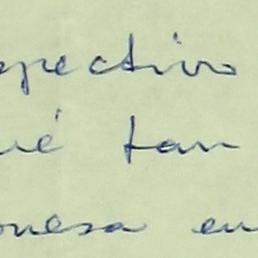 spectivo
ué tan
onesa en